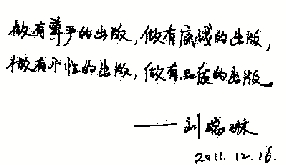 做有尊严的出版,做有底线的出版,
做有个性的出版,做有品质的出版
——刘瑞琳
2011.12.16.